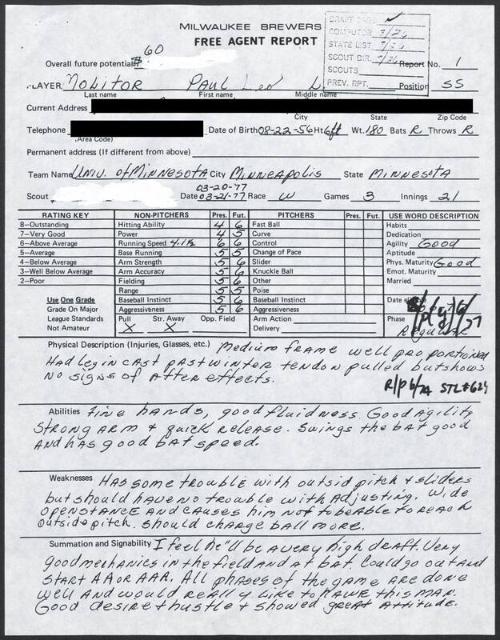 MILWAUKEE BREWERS
FREE AGENT REPORT
DRAFT
COMPUTER 3/26
STATE LIST
SCOUT DIR.
SCOUTS
PREV. RPT.
Overall future potential 60
Report No. 1
PLAYER Molitor Paul Leo L. Position SS
Last name First name Middle name
Current Address
City State Zip Code
Telephone Date of Birth 08-22-56 Ht 6ft Wt. 180 Bats R Throws R
(Area Code)
Permanent address (If different from above)
Team Name Univ. of Minnesota City Minneapolis State Minnesota
03-20-77
Scout Date 03-21-77 Race W Games 3 Innings 21
RATING KEY NON-PITCHERS Pres. Fut. PITCHERS Pres. Fut. USE WORD DESCRIPTION
8—Outstanding Hitting Ability 4 6 Fast Ball Habits
7—Very Good Power 4 5 Curve Dedication
6—Above Average Running Speed 4.1 6 6 Control Agility Good
5—Average Base Running 5 5 Change of Pace Aptitude
4—Below Average Arm Strength 5 6 Slider Phys. Maturity Good
3—Well Below Average Arm Accuracy 5 6 Knuckle Ball Emot. Maturity
2—Poor Fielding 5 6 Other Married
Range 5 5 Poise
Use One Grade Baseball Instinct 5 6 Baseball Instinct Date
Grade On Major Aggressiveness 5 6 Aggressiveness
League Standards Pull Str. Away Opp. Field Arm Action Phase
Not Amateur X X Delivery Regular
Physical Description (Injuries, Glasses, etc.) Medium frame well proportioned
Had leg in cast past winter tendon pulled but shows
no signs of after effects.
R/P 6/74 STL #624
Abilities Fine hands, good fluidness. Good agility
Strong arm + quick release. Swings the bat good
and has good bat speed.
Weaknesses Has some trouble with outsid pitch + sliders
but should have no trouble with adjusting. Wide
open stance and causes him not to be able to reach
outside pitch. Should charge ball more.
Summation and Signability I feel he'll be a very high draft. Very
good mechanics in the field and at bat. Could go out and
start AA or AAA. All phases of the game are done
well and would really like to have this man.
Good desire + hustle + showed great attitude.